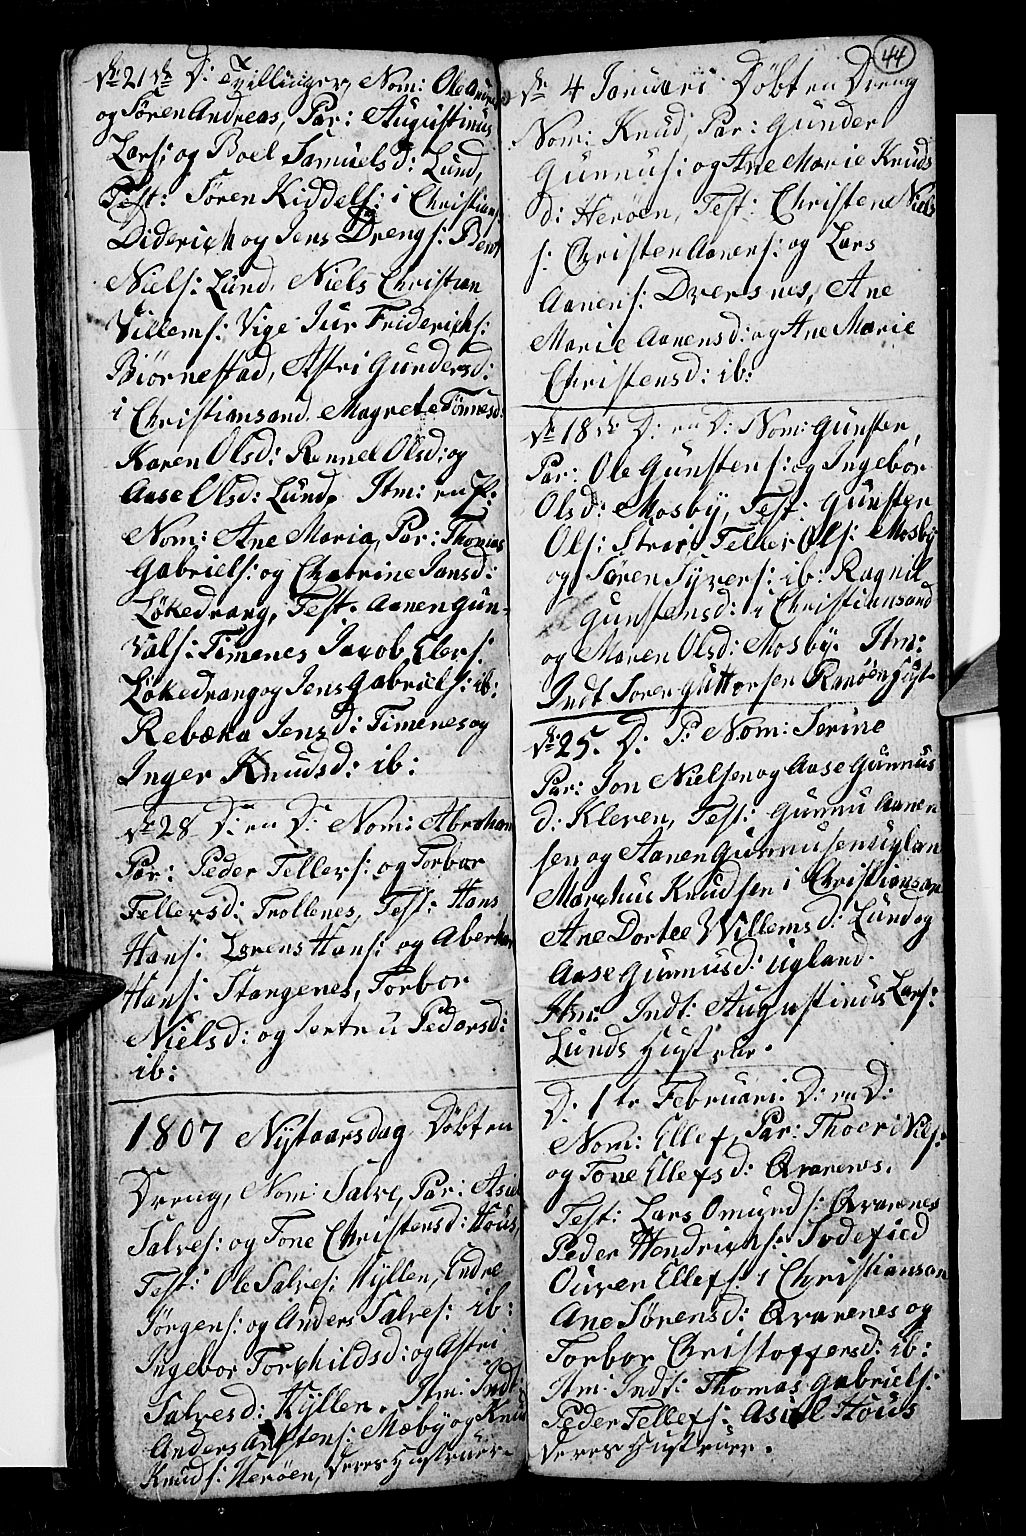 d: 21de D: Tvillinger, Nom: Ole Andreas
og Søren Andreas, Par: Augustinus
Lars: og Boel Samuelsd: Lund,
Test: Søren Kiddels: i Christians
Diderich og Jens Drengs: Bent
Niels: Lund. Niels Christian
Villems: Vige Jur Friderichs:
Biørnestad, Astri Gundersd:
i Christiansand. Magrete Tønnesd:
Karen Olsd: Rennel Olsd: og
Aase Olsd: Lund. Itm: en P:
Nom: Ane Maria, Par: Thomas
Gabriels: og Chatrine Jansd:
Løkedrang, Test. Aanen Gun-
vals: Timenes Jacob Elers:
Løkedrang og Jens Gabriels: ib:
Rebæka Jensd: Timenes og
Inger Knudsd: ib:
d: 28 D: en D: Nom: Abraham
Par: Peder Tellers: og Torbor
Tellersd: Trollenes, Test: Hans
Hans: Lorens Hans: og Abraham
Hans: Stangenes, Torbor
Nielsd: og Pedersd:
ib:
1807 Nytaarsdag Døbt en
Dreng, Nom: Salve, Par: Asiel
Salves: og Tone Christensd: Hous,
Test: Ole Salves: Kyllen, Endre
Jørgens: og Anders Salves: ib:
Ingebor Torchildsd: og Astri
Salvesd: Kyllen. Itm: Indt:
Anders Mæby og Knud
Knuds: Herøen, deres Hustruer.
44
d: 4 Januari Døbt en Dreng
Nom: Knud, Par: Gunder
Gunnus: og Ane Marie Knuds
d: Herøen, Test: Christen Niels
s: Christen Aanens: og Lars
Aanens: Dversnes, Ane
Marie Aanensd: og Ane Marie
Christensd: ib:
d: 18de D: en D: Nom: Gunsten,
Par: Ole Gunstens: og Ingebor
Olsd: Mosby, Test: Gunsten
Ols: Strai Teller Ols: Mosby
og Søren Syvers: ib: Ragnil
Gunstensd: i Christiansand
og Maren Olsd: Mosby. Itm:
Indt Søren Guttorsen Ranøen Hust-
d: 25. D: P: Nom: Serine
Par: Jon Nielsen og Aase Gunnus
d: Kleven, Test: Gunnu Aanen
sen og Aanen Gunnusen Uglan
Marchus Knudsen i Christiansan
Ane Dortee Willemsd: Lund og
Aase Gunnusd: Ugland.
Itm: Indt: Augustinus Lars:
Lunds Hustrue.
D: 1te Februari: D: en D:
Nom: Ellef, Par: Thore Niels:
og Tone Ellefsd: Qvarenes.
Test: Lars Omunds: Qvarenes
Peder Hendrichs: Sodefied
Ouven Ellefs: i Christiansan
Ane Sørensd: Qvarenes og
Torbor Christoffersd: ib:
Itm: Indt: Thomas Gabriels:
Peder Tellefs: Asiel Hous
deres Hustruer.